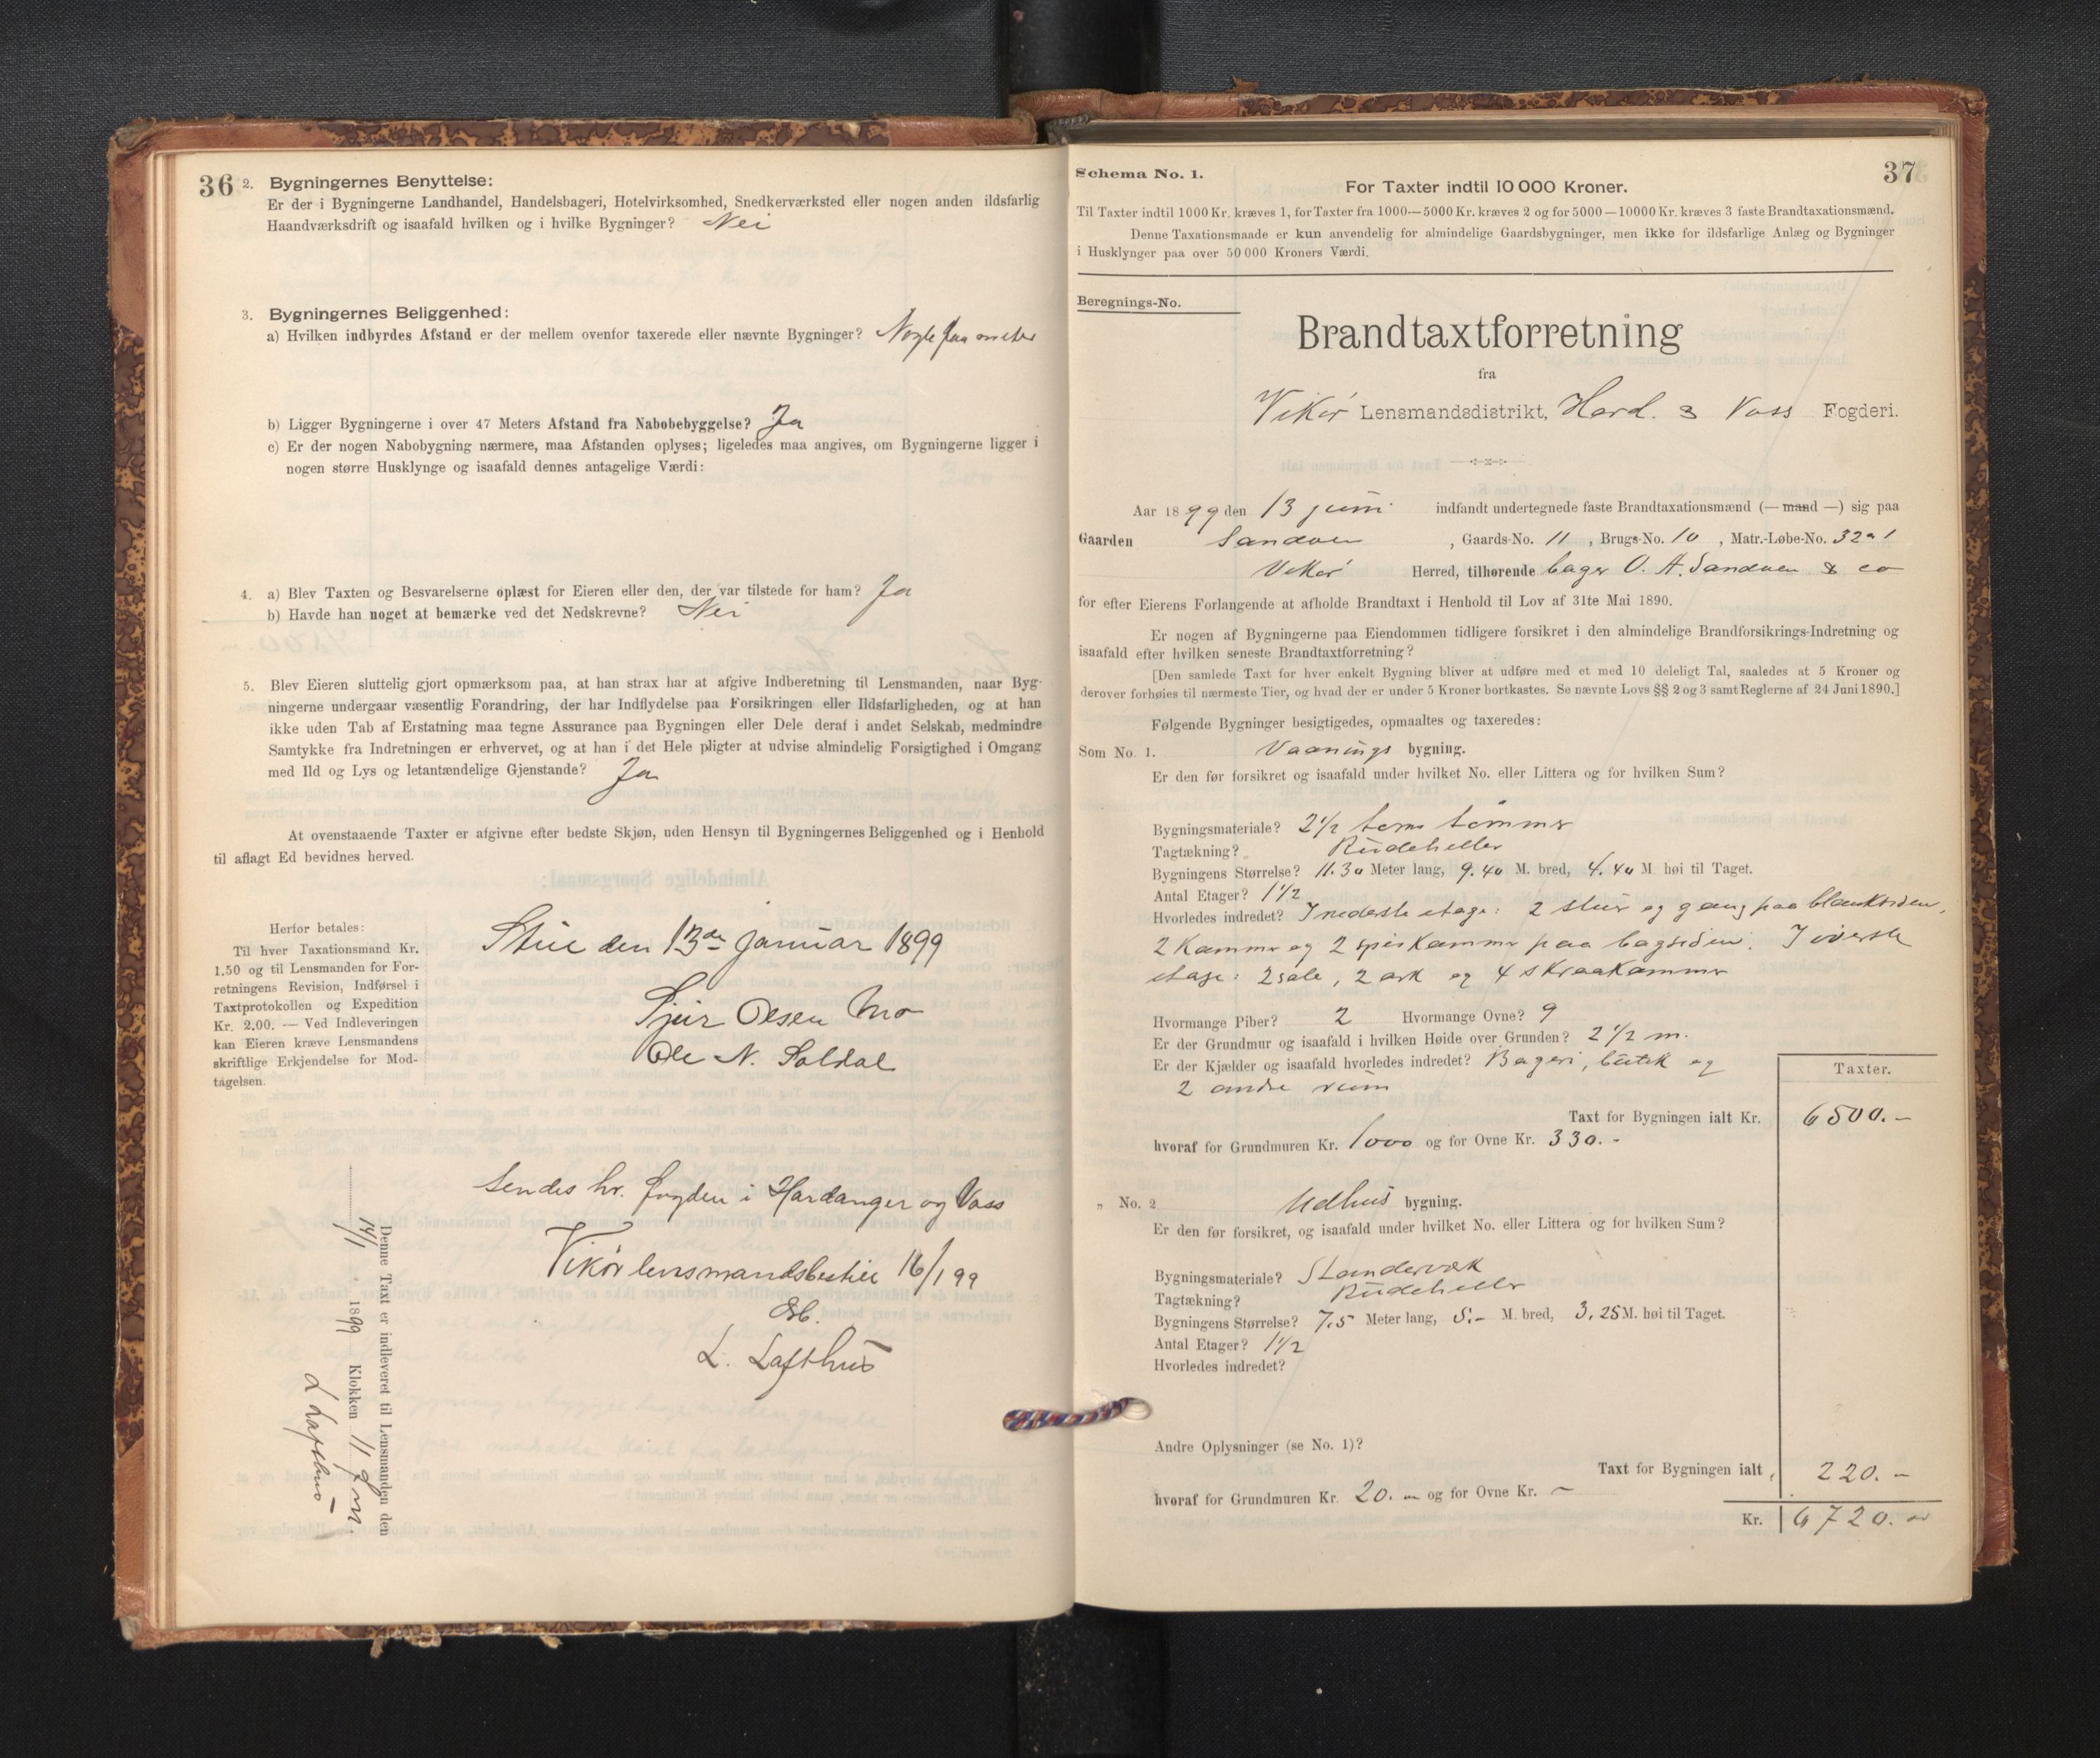 36
2. Bygningernes Benyttelse:
Er der i Bygningerne Landhandel, Handelsbageri, Hotelvirksomhed, Snedkerværksted eller nogen anden ildsfarlig
Haandværksdrift og isaafald hvilken og i hvilke Bygninger? Nei
3. Bygningernes Beliggenhed:
a) Hvilken indbyrdes Afstand er der mellem ovenfor taxerede eller nævnte Bygninger? Nogle faa meter
b) Ligger Bygningerne i over 47 Meters Afstand fra Nabobebyggelse? Ja
c) Er der nogen Nabobygning nærmere, maa Afstanden oplyses; ligeledes maa angives, om Bygningerne ligger i
nogen større Husklynge og isaafald dennes antagelige Værdi:
4. a) Blev Taxten og Besvarelserne oplæst for Eieren eller den, der var tilstede for ham? Ja
b) Havde han noget at bemærke ved det Nedskrevne? Nei
5. Blev Eieren sluttelig gjort opmærksom paa, at han strax har at afgive Indberetning til Lensmanden, naar Byg-
ningerne undergaar væsentlig Forandring, der har Indflydelse paa Forsikringen eller Ildsfarligheden, og at han
ikke uden Tab af Erstatning maa tegne Assurance paa Bygningen eller Dele deraf i andet Selskab, medmindre
Samtykke fra Indretningen er erhvervet, og at han i det Hele pligter at udvise almindelig Forsigtighed i Omgang
med Ild og Lys og letantændelige Gjenstande? Ja
At ovenstaaende Taxter er afgivne efter bedste Skjøn, uden Hensyn til Bygningernes Beliggenhed og i Henhold
til aflagt Ed bevidnes herved.
Herfor betales:
Til hver Taxationsmand Kr.
1.50 og til Lensmanden for For-
retningens Revision, Indførsel i
Taxtprotokollen og Expedition
Kr. 2.00. — Ved Indleveringen
kan Eieren kræve Lensmandens
skriftlige Erkjendelse for Mod-
tagelsen.
Stue den 13de januar 1899
Sjur Olsen Mo
Ole N. Soldal
Sendes hr. fogden i Hardanger og Voss
Vikør lensmandsbestil 16/1 99
L. Lofthus
Denne Taxt er indleveret til Lensmanden den
14/1 1899 Klokken 11 fm.
L Lofthus
37
Schema No. 1.
For Taxter indtil 10 000 Kroner.
Til Taxter indtil 1000 Kr. kræves 1, for Taxter fra 1000—5000 Kr. kræves 2 og for 5000—10000 Kr. kræves 3 faste Brandtaxationsmænd.
Denne Taxationsmaade er kun anvendelig for almindelige Gaardsbygninger, men ikke for ildsfarlige Anlæg og Bygninger
i Husklynger paa over 50 000 Kroners Værdi.
Beregnings-No.
Brandtaxtforretning
fra
Vikør Lensmandsdistrikt, Hard. & Voss Fogderi.
Aar 1899 den 13 juni indfandt undertegnede faste Brandtaxationsmænd (— mand —) sig paa
Gaarden Sandven, Gaards-No. 11, Brugs-No. 10, Matr.-Løbe-No. 32 a 1
Vikør Herred, tilhørende bager O. A. Sandven & co
for efter Eierens Forlangende at afholde Brandtaxt i Henhold til Lov af 31te Mai 1890.
Er nogen af Bygningerne paa Eiendommen tidligere forsikret i den almindelige Brandforsikrings-Indretning og
isaafald efter hvilken seneste Brandtaxtforretning?
[Den samlede Taxt for hver enkelt Bygning bliver at udføre med et med 10 deleligt Tal, saaledes at 5 Kroner og
derover forhøies til nærmeste Tier, og hvad der er under 5 Kroner bortkastes. Se nævnte Lovs §§ 2 og 3 samt Reglerne af 24 Juni 1890.]
Følgende Bygninger besigtigedes, opmaaltes og taxeredes:
Som No. 1. Vaanings bygning.
Er den før forsikret og isaafald under hvilket No. eller Littera og for hvilken Sum?
Bygningsmateriale? 2 1/2 toms tømmer
Tagtækning? Rudeheller
Bygningens Størrelse? 11.30 Meter lang, 9.40 M. bred, 4.40 M. høi til Taget.
Antal Etager? 1 1/2
Hvorledes indredet? I nederste etage: 2 stuer og gang paa blanksiden,
2 kammer og 2 spiskammer paa bagsiden. I øverste
etage: 2 sale, 2 ark og 4 skraakammer
Hvormange Piber? 2 Hvormange Ovne? 9
Er der Grundmur og isaafald i hvilken Høide over Grunden? 2 1/2 m.
Er der Kjælder og isaafald hvorledes indredet? Bageri, butik og
2 andre rum
Taxter.
Taxt for Bygningen ialt Kr. 6500.-
hvoraf for Grundmuren Kr. 1000 og for Ovne Kr. 330.-
„ No. 2 Udhus bygning.
Er den før forsikret, og isaafald under hvilket No. eller Littera og for hvilken Sum?
Bygningsmateriale? Standerværk
Tagtækning? Rudeheller
Bygningens Størrelse? 7.5 Meter lang, 5.- M. bred, 3,25 M. høi til Taget.
Antal Etager? 1 1/2
Hvorledes indredet?
Andre Oplysninger (se No. 1)?
Taxt for Bygningen ialt, 220.-
hvoraf for Grundmuren Kr. 20.- og for Ovne Kr. -
Kr. 6720.-